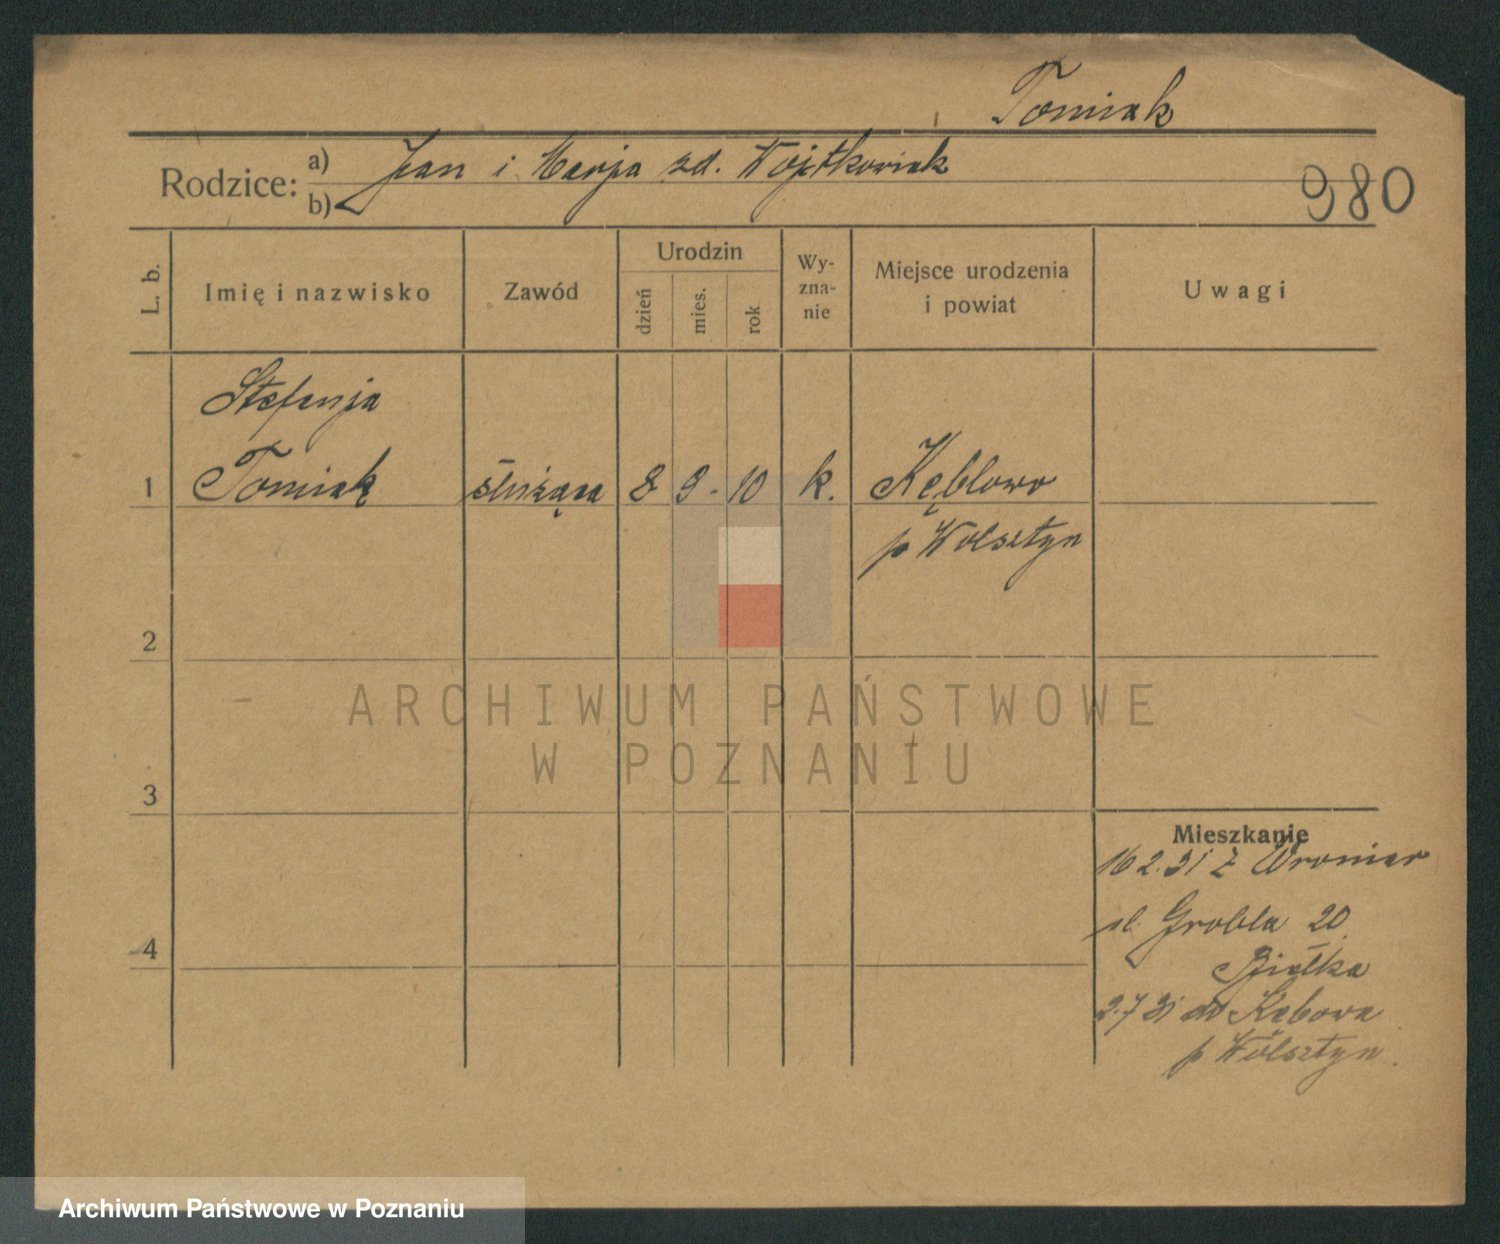 Tomiak
Rodzice:
a) Jan i Marja zd. Wojtkowiak
b)
980
L. b.
Imię i nazwisko
Zawód
Urodzin
dzień
mies.
rok
Wy-
zna-
nie
Miejsce urodzenia
i powiat
Uwagi
Stefanja
1 Tomiak służąca 8 9 - 10 k. Kębłowo
p Wolsztyn
2
3
4
Mieszkanie
16 2.31 z Wroniaw
ul. Grobla 20
Białka
2.7 31 do Kębowa
p Wolsztyn
ARCHIWUM PAŃSTWOWE
W POZNANIU
Archiwum Państwowe w Poznaniu